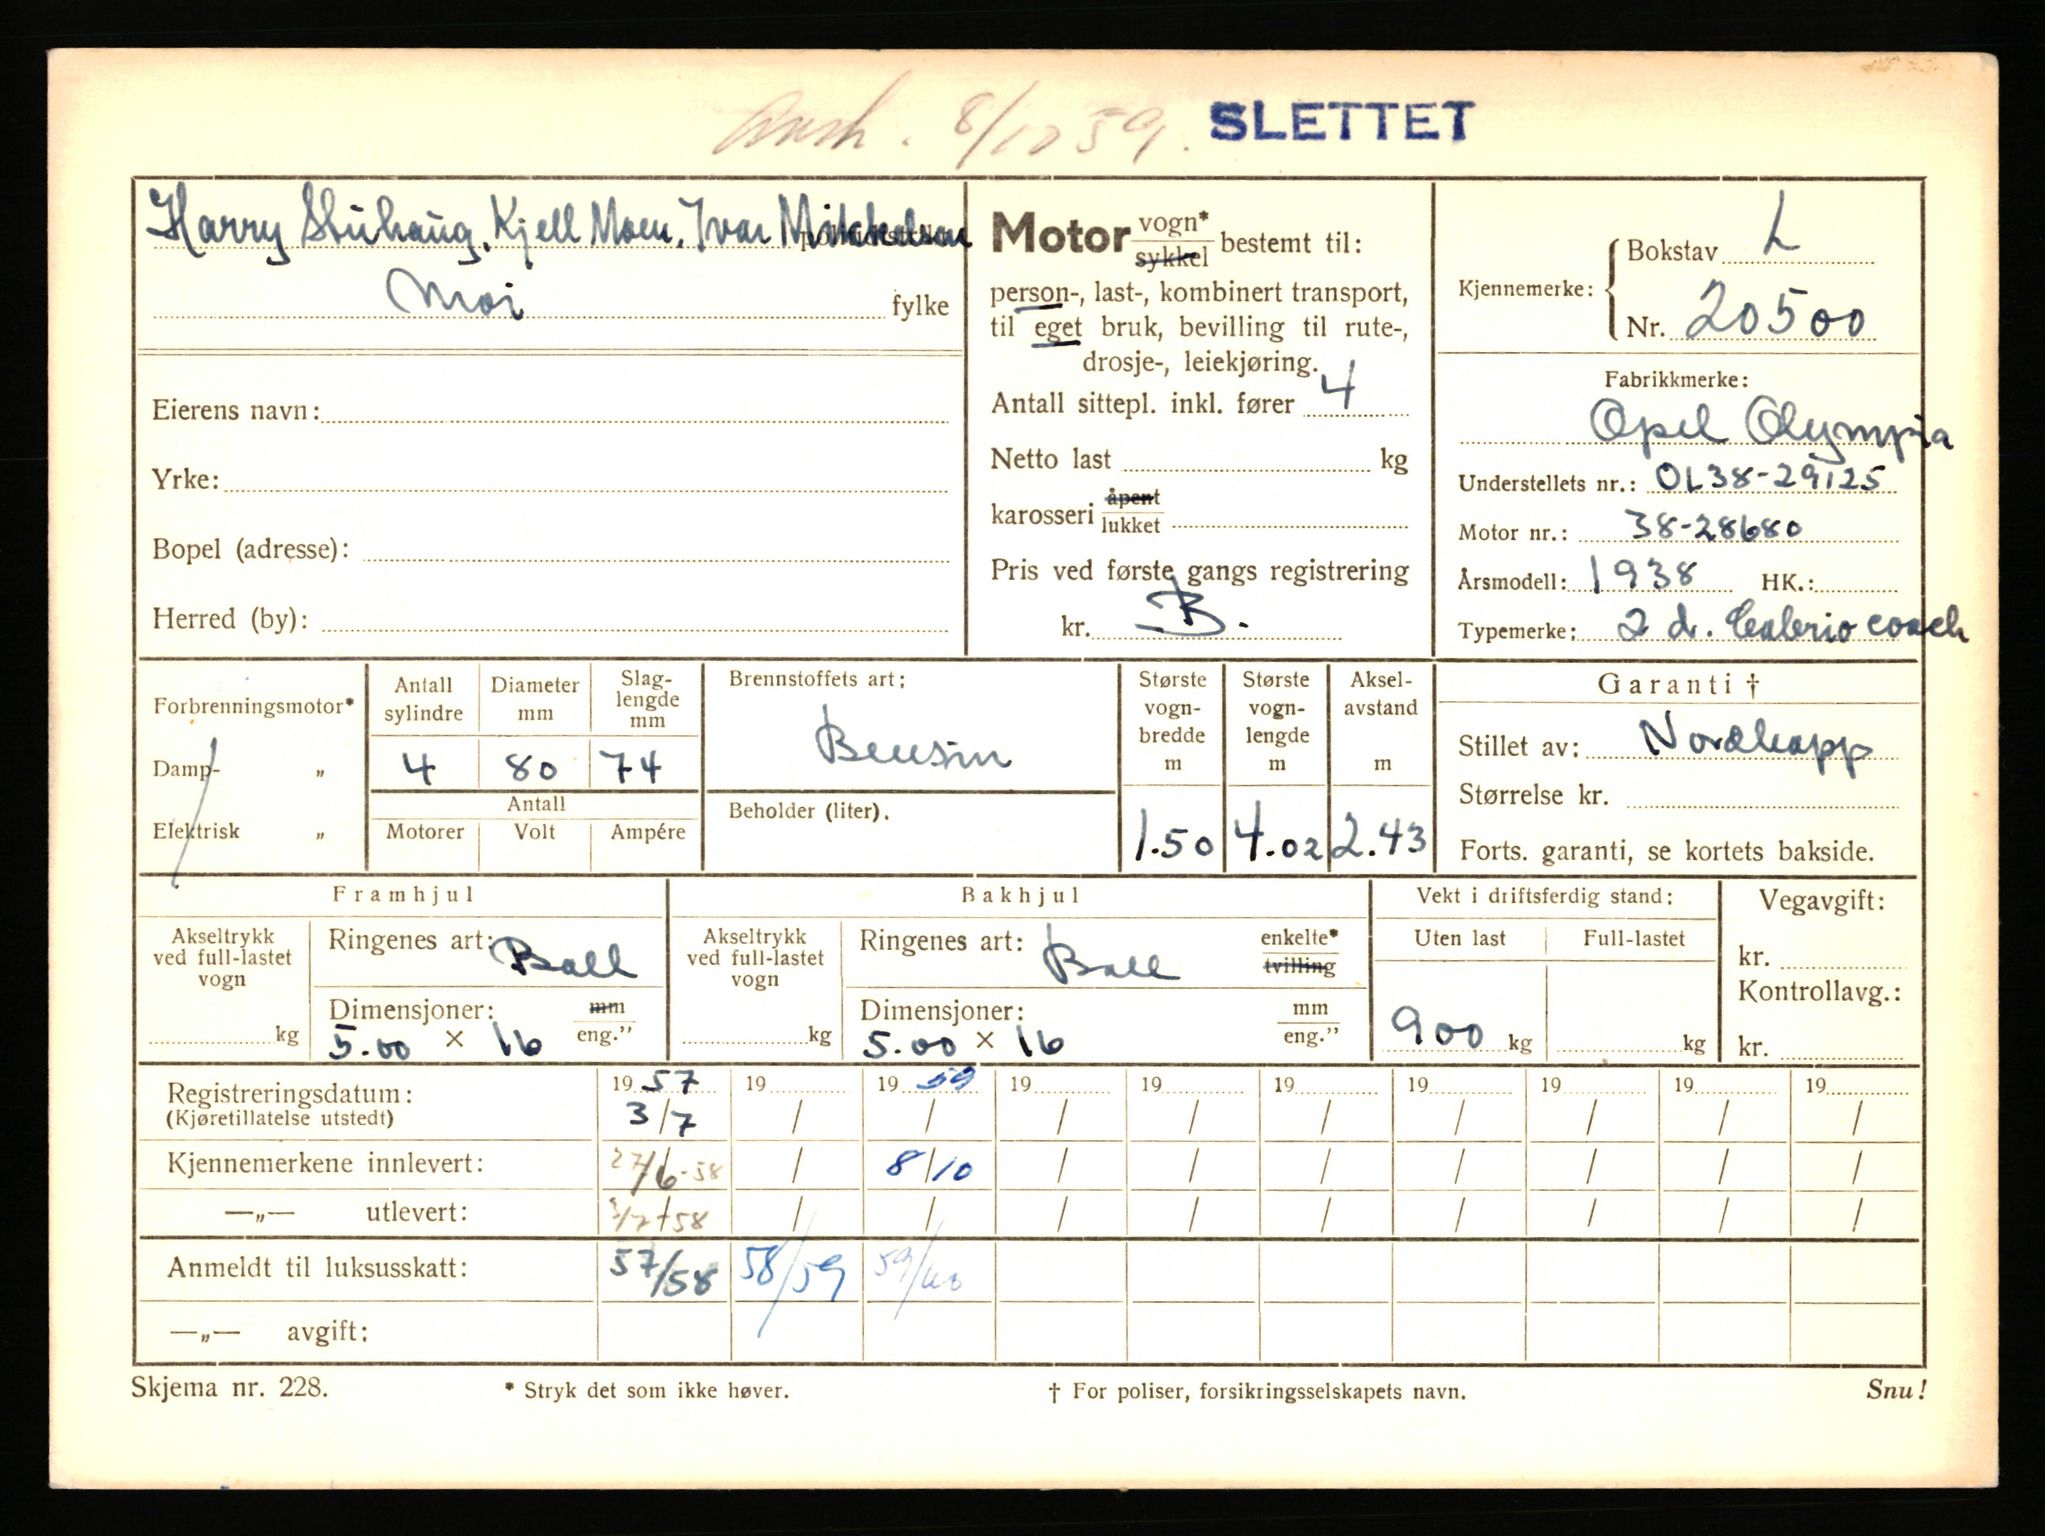 8/10 59. SLETTET
Harry Stuhaug, Kjell Moen, Ivar Mikkelsen
Moi fylke
Eierens navn:
Yrke:
Bopel (adresse):
Herred (by):
Motor vogn* sykkel bestemt til:
person-, last-, kombinert transport,
til eget bruk, bevilling til rute-,
drosje-, leiekjøring.
Antall sittepl. inkl. fører 4
Netto last kg
karosseri åpent lukket
Pris ved første gangs registrering
kr. B.
Kjennemerke: Bokstav L
Nr. 20500
Fabrikkmerke:
Opel Olympia
Understellets nr.: OL38-29125
Motor nr.: 38-28680
Årsmodell: 1938 HK.:
Typemerke: 2 d. Cabrio coach
Forbrenningsmotor*
Damp- "
Elektrisk "
Antall sylindre 4
Diameter mm 80
Slag-lengde mm 74
Antall
Motorer Volt Ampére
Brennstoffets art:
Bensin
Beholder (liter).
Største vogn-bredde m 1.50
Største vogn-lengde m 4.02
Aksel-avstand m 2.43
Garanti †
Stillet av: Nordkapp
Størrelse kr.
Forts. garanti, se kortets bakside.
Framhjul
Akseltrykk ved full-lastet vogn kg
Ringenes art: Ball
Dimensjoner: mm eng."
5.00 × 16
Bakhjul
Akseltrykk ved full-lastet vogn kg
Ringenes art: Ball enkelte* tvilling
Dimensjoner: mm eng."
5.00 × 16
Vekt i driftsferdig stand:
Uten last Full-lastet
900 kg kg
Vegavgift:
kr.
Kontrollavg.:
kr.
Registreringsdatum: 1957 19 1959 19 19 19 19 19 19 19
(Kjøretillatelse utstedt) 3/7 / / / / / / / / /
Kjennemerkene innlevert: 27/6-58 / 8/10 / / / / / / /
—„— utlevert: 3/7-58 / / / / / / / / /
Anmeldt til luksusskatt: 57/58 58/59 59/60
—„— avgift:
Skjema nr. 228. * Stryk det som ikke høver. † For poliser, forsikringsselskapets navn. Snu!